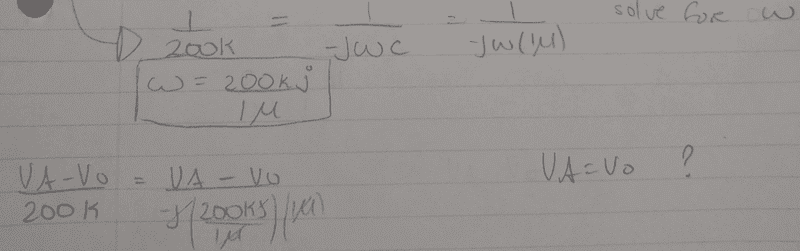 1/200K = 1/-jωc = 1/-jω(1μ) solve for ω
ω = 200Kj/1μ
VA-VO/200K = VA-VO/-j(200Kj/1μ)(1μ) VA=VO ?